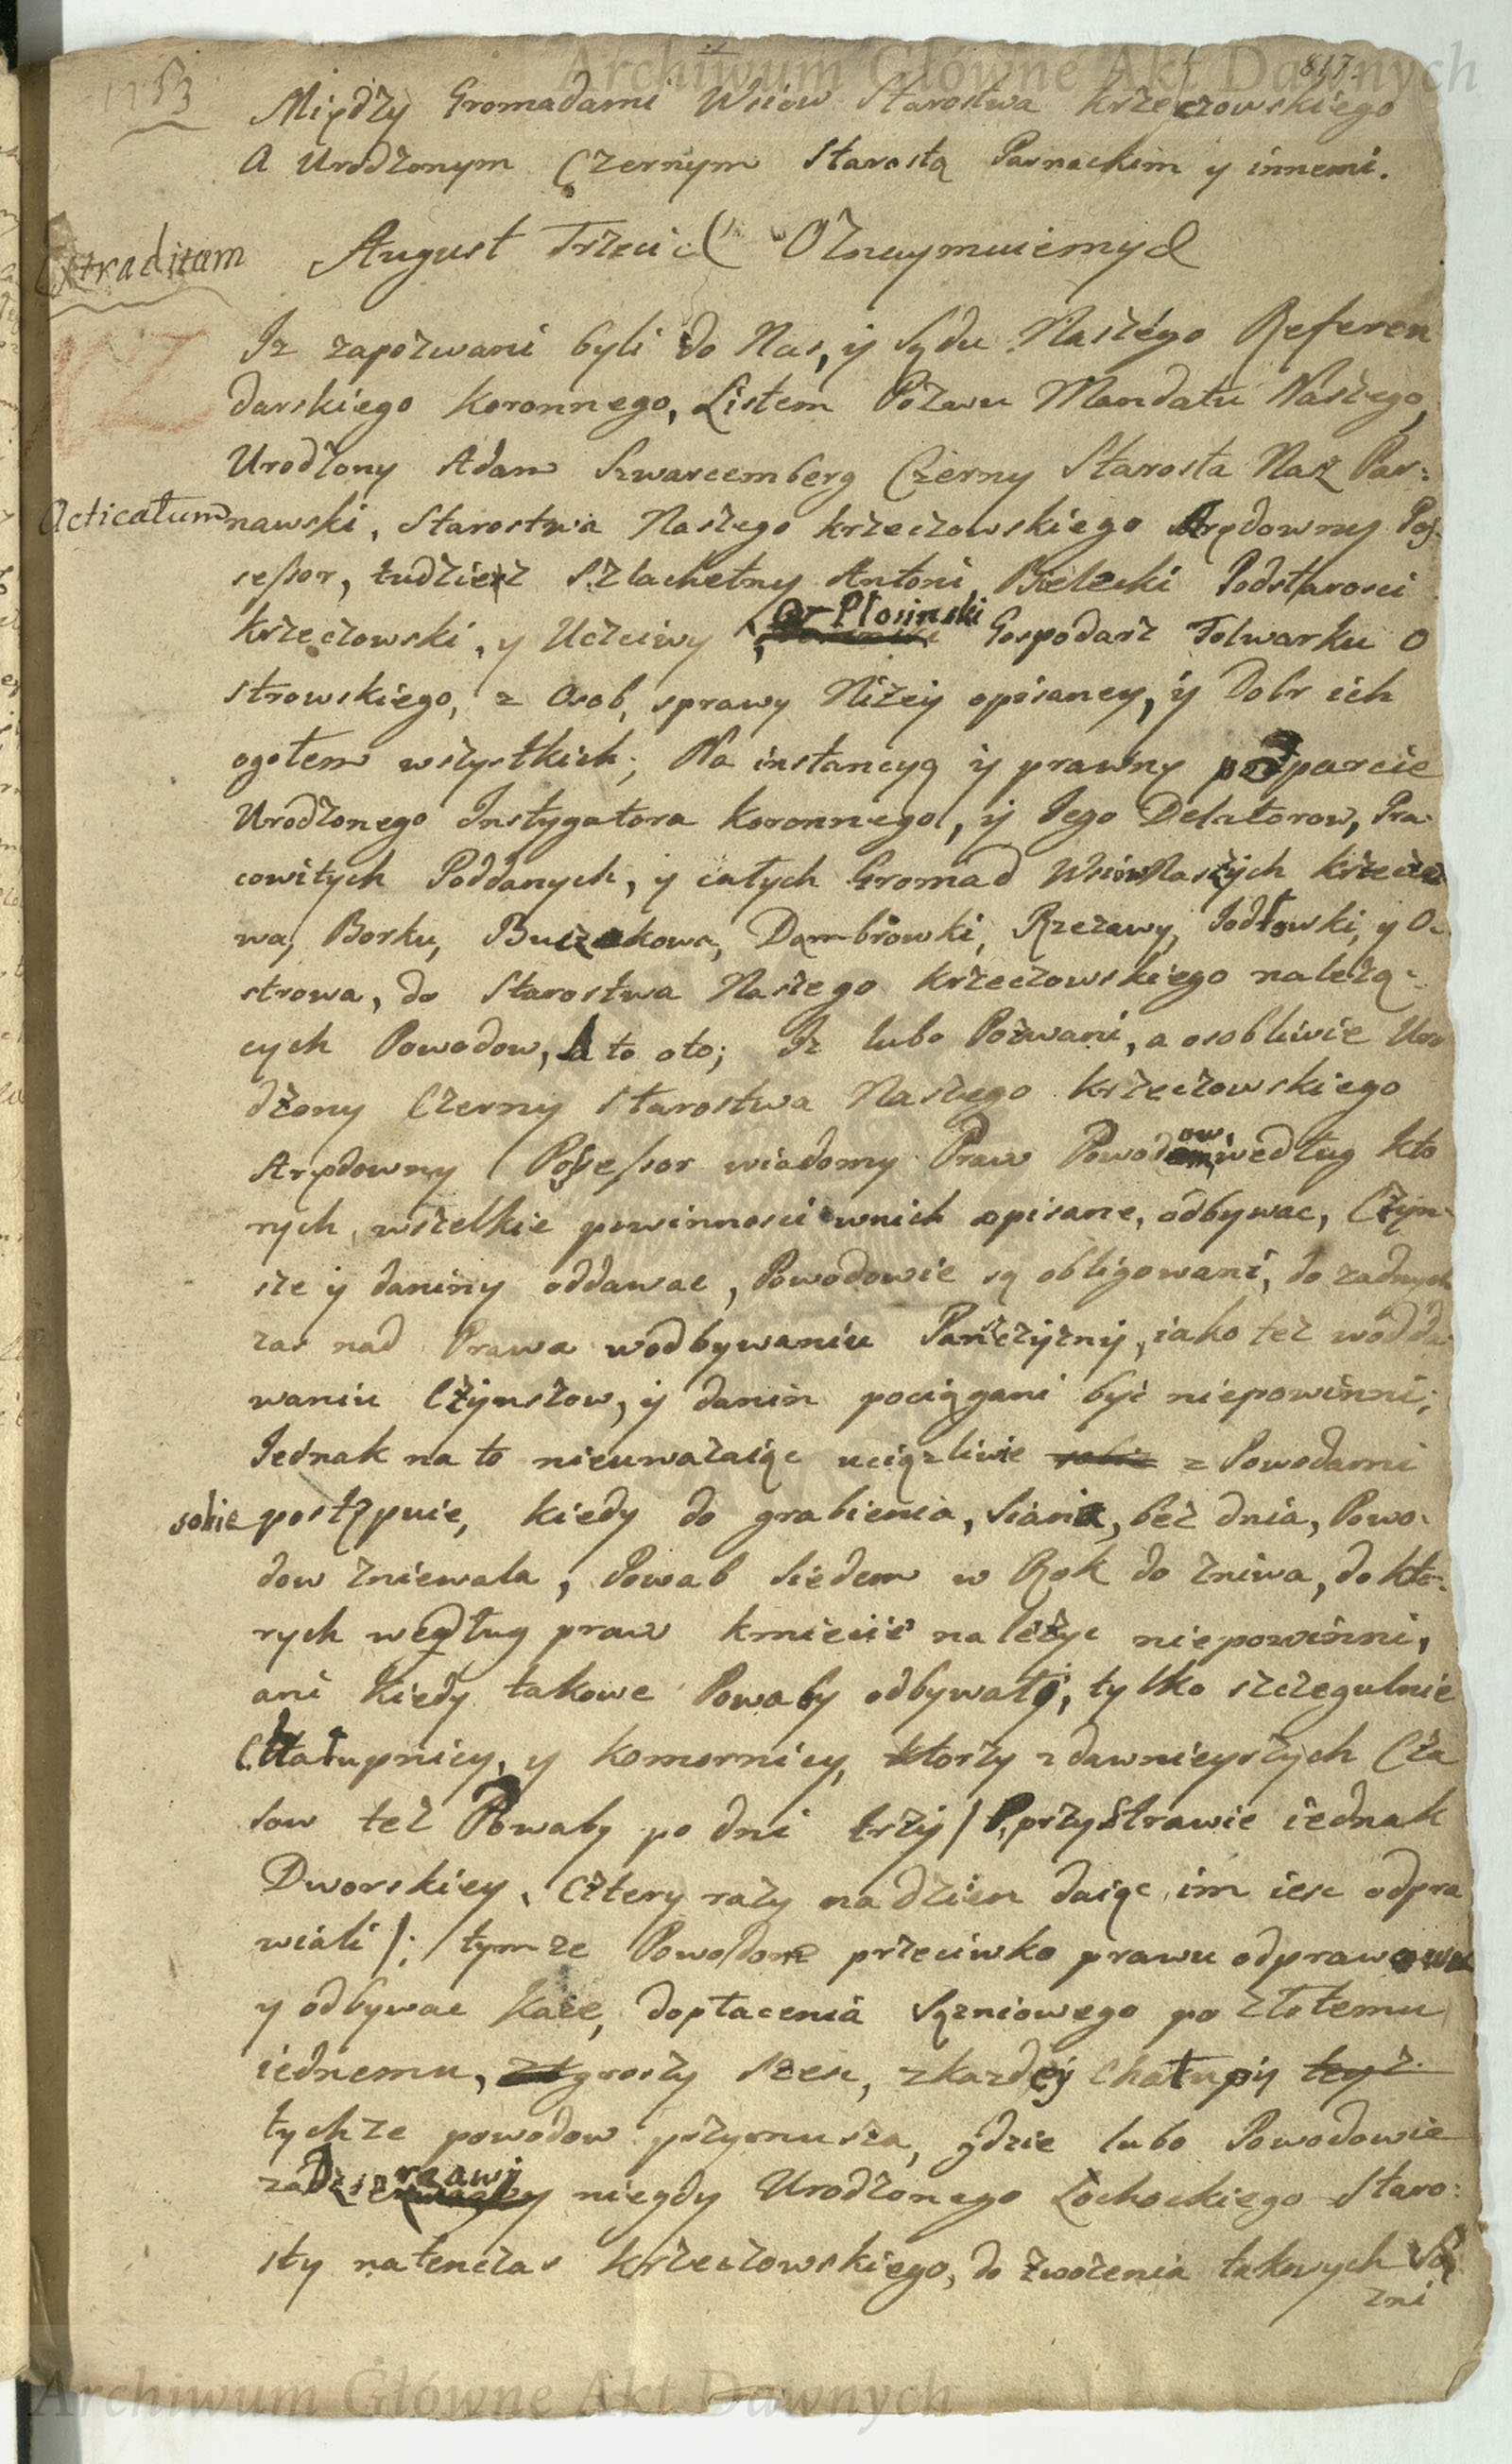 Archiwum Główne Akt Dawnych
1753
817.
Między Gromadami Wsiow Starostwa Krzeczowskiego
A Urodzonym Czernym Starostą Parnackim y innemi.
Extraditum
August Trzeci Oznaymuiemy
Iz zapozwani byli do Nas, y Sądu Naszego Referen
darskiego Koronnego, Listem Pozwu Mandatu Naszego,
Urodzony Adam Szwarcemberg Czerny Starosta Nasz Par:
Acticatum
nawski, Starostwa Naszego Krzeczowskiego Arędowny Pos
sessor, tudziesz Szlachetny Antoni Bielecki Podstarosci
Krzeczowski, y Uczciwy Gr Płosinski Gospodarz Folwarku O
strowskiego, z Osob, sprawy Niżey opisaney, y Dobr ich
ogołem wszystkich; Na instancyą y prawny podparcie
Urodzonego Instygatora Koronnego, y Iego Delatorow, Pra
cowitych Poddanych, y całych Gromad Wsiow Naszych Krzeczo
wa, Borku, Buczkowa, Dąmbrowki, Rzezawy, Jodłowki, y O
strowa, do Starostwa Naszego Krzeczowskiego należą:
cych Powodow, A to oto; Iz lubo Pozwani, a osobliwie Uro
dzony Czerny Starostwa Naszego Krzeczowskiego
Arędowny Possessor wiadomy Praw Powodow według kto
rych, wszelkie powinnosci wnich opisane, odbywac, Czyn
sze y daniny oddawac, Powodowie są obligowani, do zadnych
zas nad Prawa wodbywaniu Panszczyzny, iako tez wodda
waniu Czynszow, y danin pociągani być niepowinni;
Iednak na to nieuwazaiąc uciązliwie sobie z Powodami
sobie postępuie, kiedy do grabienia, Siana, bez dnia, Powo:
dow zniewala, Powab Siedem w Rok do zniwa, do kto:
rych według praw kmiecie nalezyc niepowinni,
ani kiedy takowe Powaby odbywały, tylko szczegulnie
Chałupnicy, y komornicy, ktorzy z dawnieyszych Cza
sow tez Powaby po dni trzy /: przy Strawie iednak
Dworskiey, cztery razy na dzien daiąc im iesc odpra
wiali /: tymze Powodom przeciwko prawu odprawowac
y odbywac kaze, dopłacenia Sązniowego po złotemu
iednemu, groszy Szesc, zkazdey Chałupy
tychze powodow przymusza, gdzie lubo Powodowie
za Dzierzawy niegdy Urodzonego Łochockiego Staro:
sty natenczas Krzeczowskiego, do zwozenia takowych Są
zni
Archiwum Główne Akt Dawnych